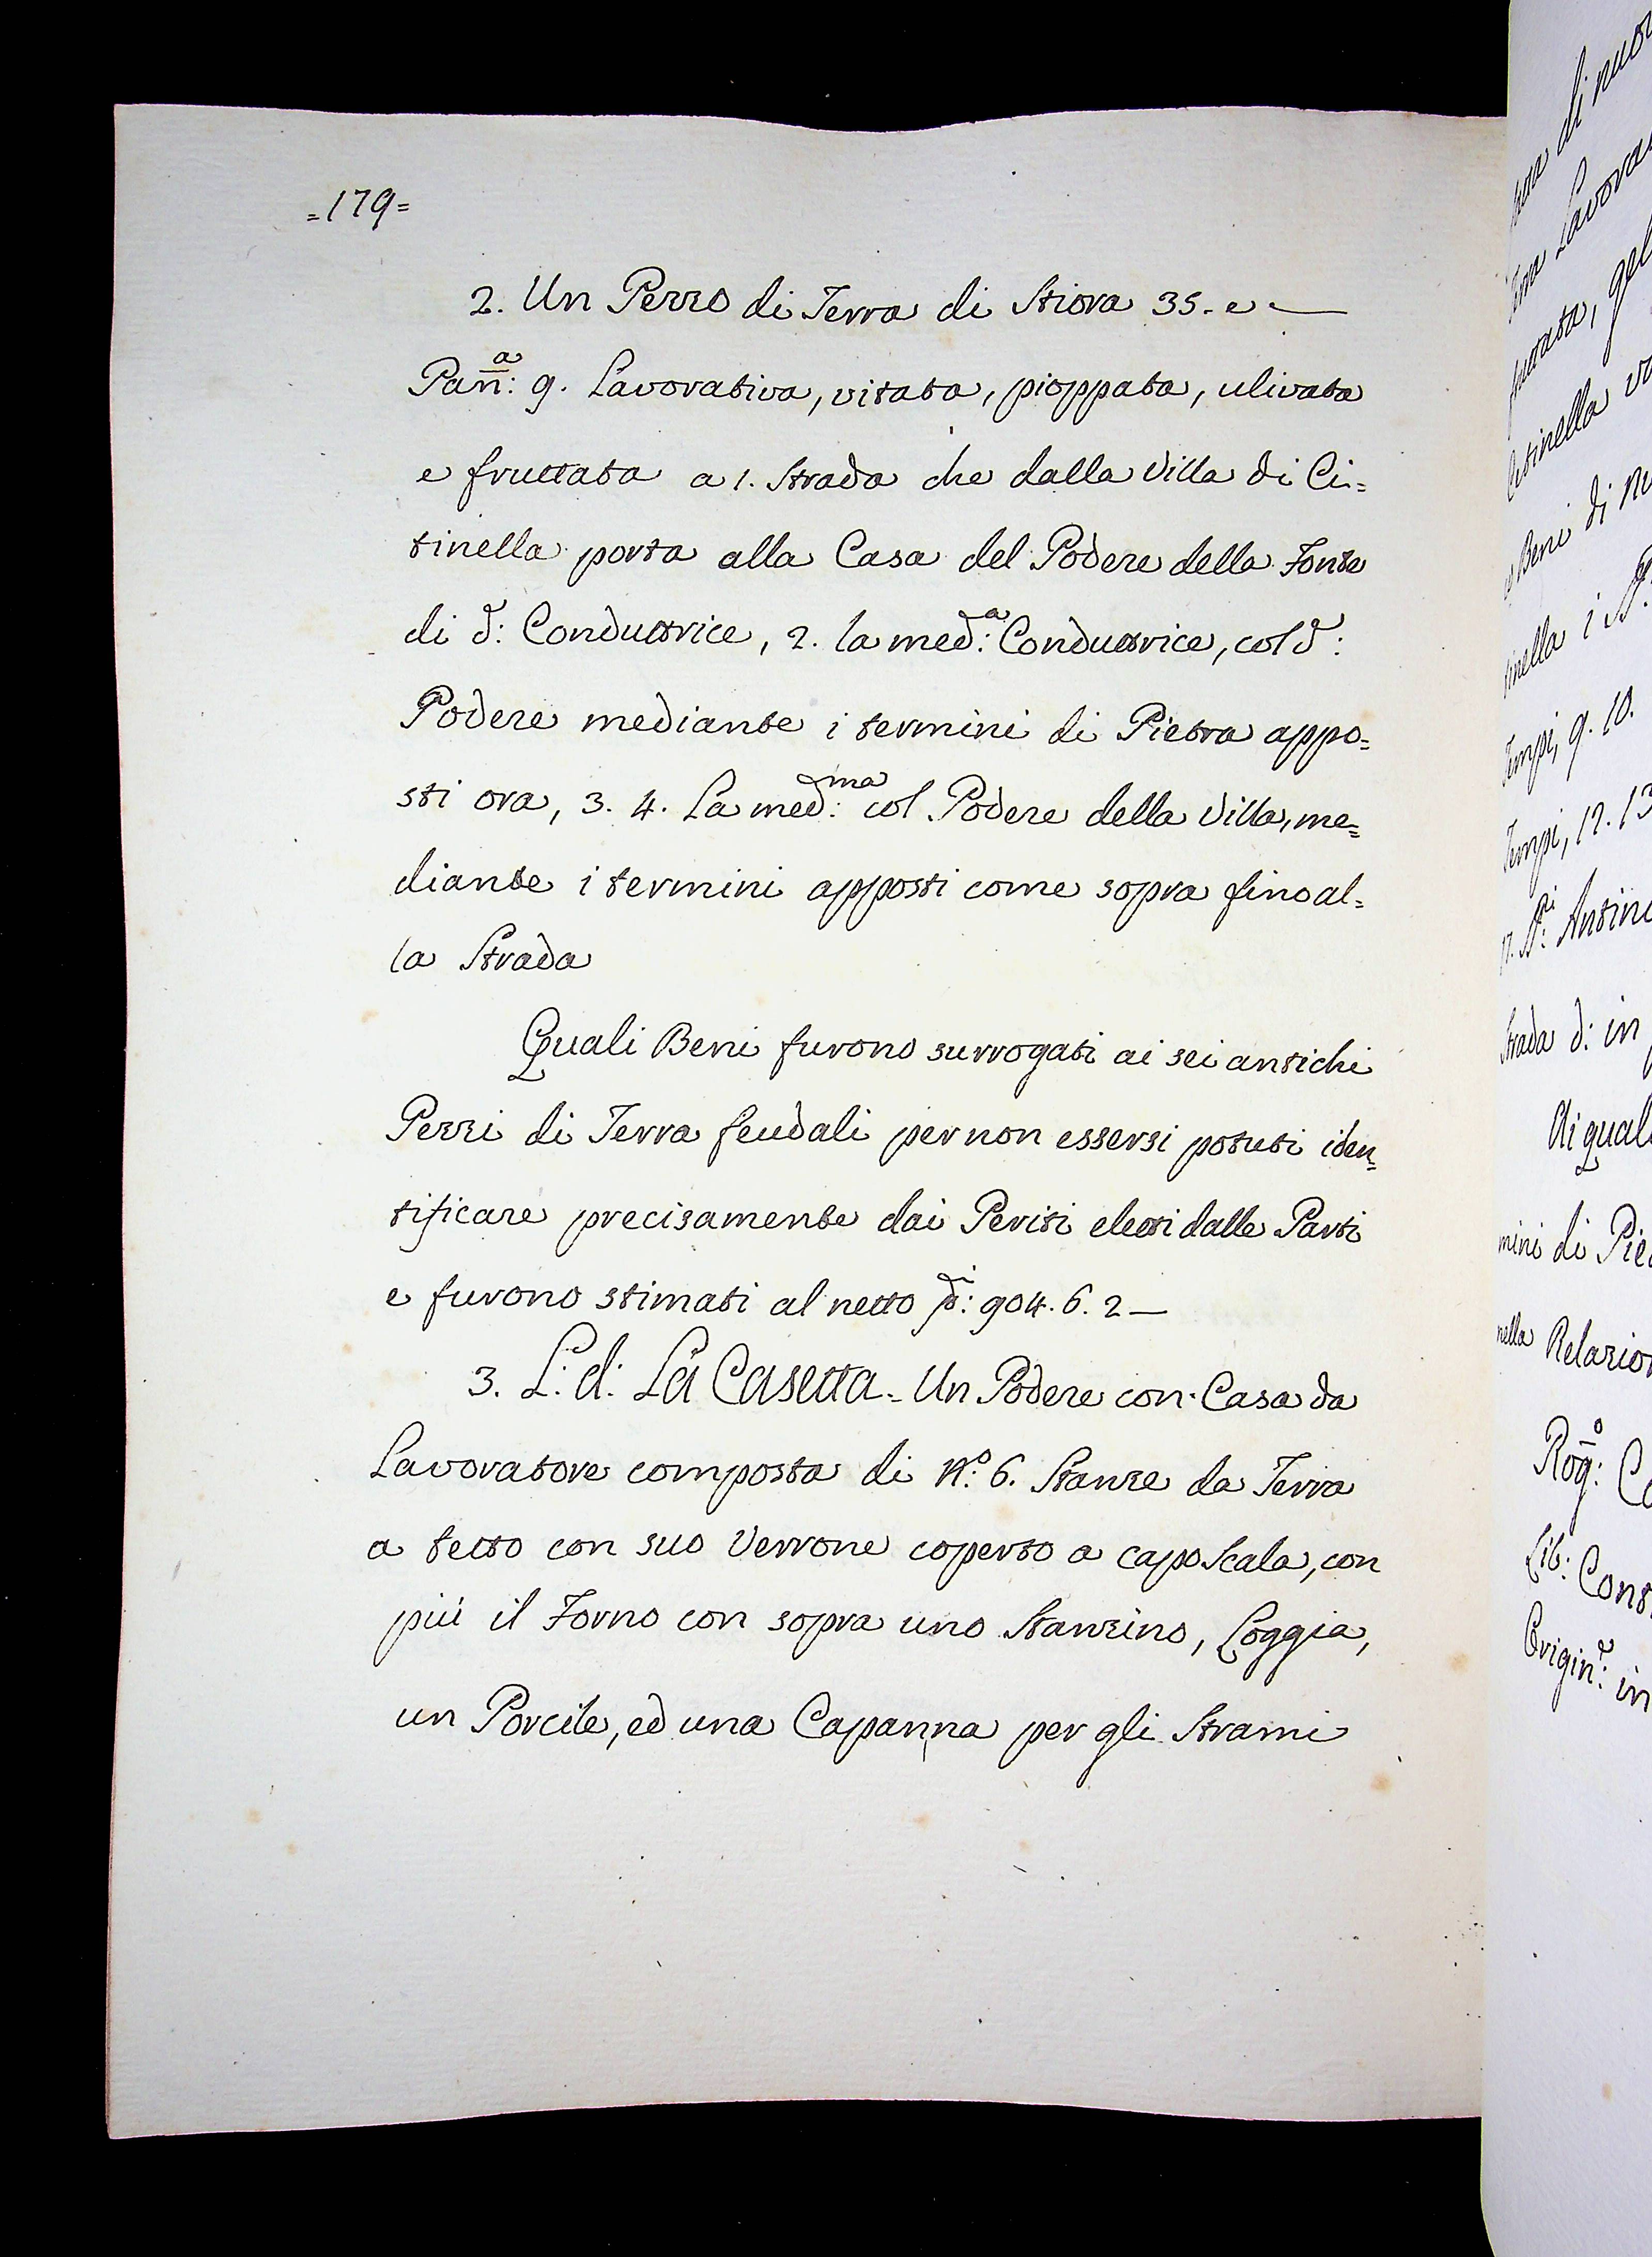 =179=
2. Un Pezzo di Terra di Stiora 35. e —
Pan̅:ᵃ 9. Lavorativa, vitata, pioppata, ulivata
e fruttata a 1. Strada che dalla Villa di Ci=
tinella porta alla Casa del Podere della Fonte
di d: Conduttrice, 2. la med:ᵃ Conduttrice, col d:
Podere mediante i termini di Pietra appo=
sti ora, 3. 4. La med:ᵐᵃ col Podere della Villa, me=
diante i termini apposti come sopra fino al=
la Strada
Quali Beni furono surrogati ai sei antichi
Pezzi di Terra feudali per non essersi potuti iden=
tificare precisamente dai Periti eletti dalle Parti
e furono stimati al netto di: 904. 6. 2 —
3. L: d: La Casetta. Un Podere con Casa da
Lavoratore composta di N.º 6. Stanze da Terra
a tetto con suo Verrone coperto a capo Scala, con
più il Forno con sopra uno Stanzino, Loggia,
un Porcile, ed una Capanna per gli Strami
di nuov
Lavora
gel
Citinella
Beni di
tinella i
Tempi, 9. 10.
Tempi, 12. 13
Antino
Strada d: in
Ai qual
mini di Pie
nella Relazion
Rog:º
Lib: Cont
Origin: in